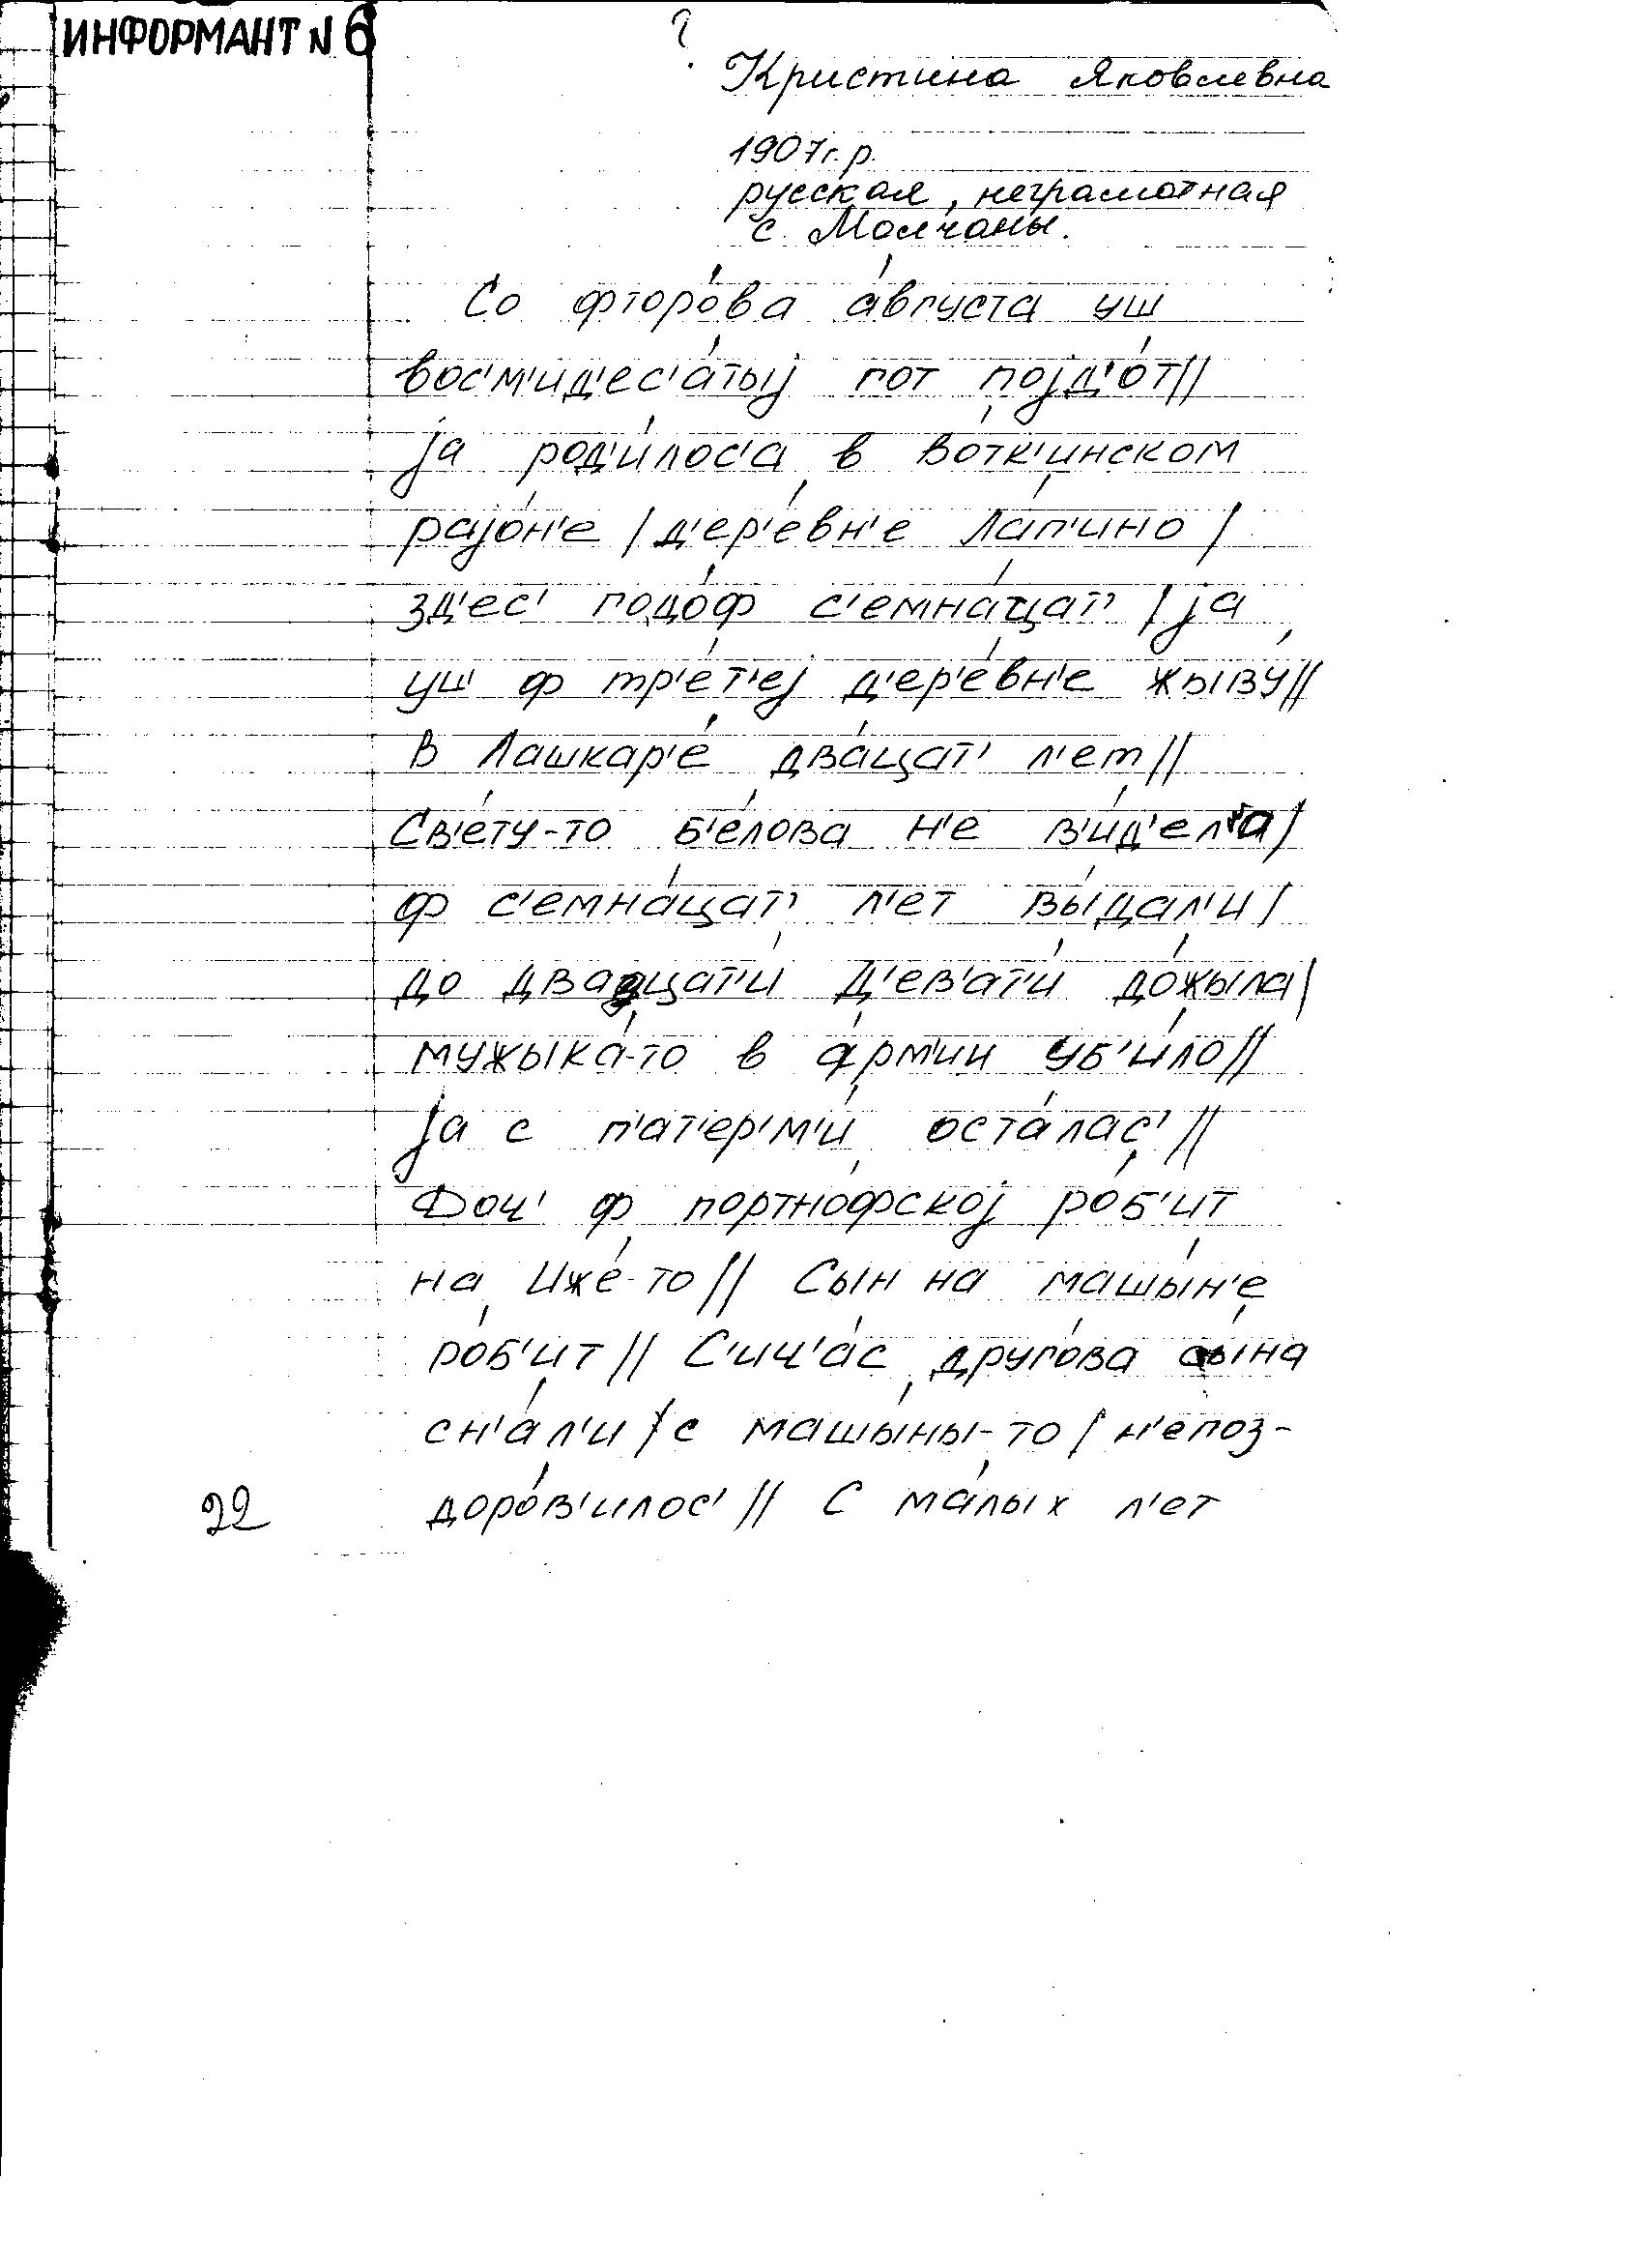 ИНФОРМАНТ N 6
?
Кристина Яковлевна
1907 г.р.
русская, неграмотная
с. Молчаны.
Со фторо́ва а́вгуста уш
вос'м'ид'ес'а́тыј гот појд'о́т//
ја род'и́лос'а в Во́тк'инском
рајо́н'е / д'ер'е́вн'е Ла́п'ино /
зд'ес' годо́ф с'емна́цат' / ја
уш ф тр'е́т'еј д'ер'е́вн'е жыву́//
В Лашкар'е́ два́цат' л'ет//
Св'е́ту-то б'е́лова н'е в'и́д'ела/
ф с'емна́цат' л'ет вы́дал'и/
до двацат'и́ д'ев'ат'и́ до́жыла/
мужыка́-то в а́рм'ии уб'и́ло//
ја с п'ат'ер'м'и́ оста́лас'//
Доч' ф портно́фској ро́б'ит
на Иже́-то// Сын на машы́н'е
ро́б'ит// С'ич'а́с друго́ва сы́на
сн'а́л'и / с машы́ны-то / н'епоз-
доро́в'илос'// С ма́лых л'ет
22